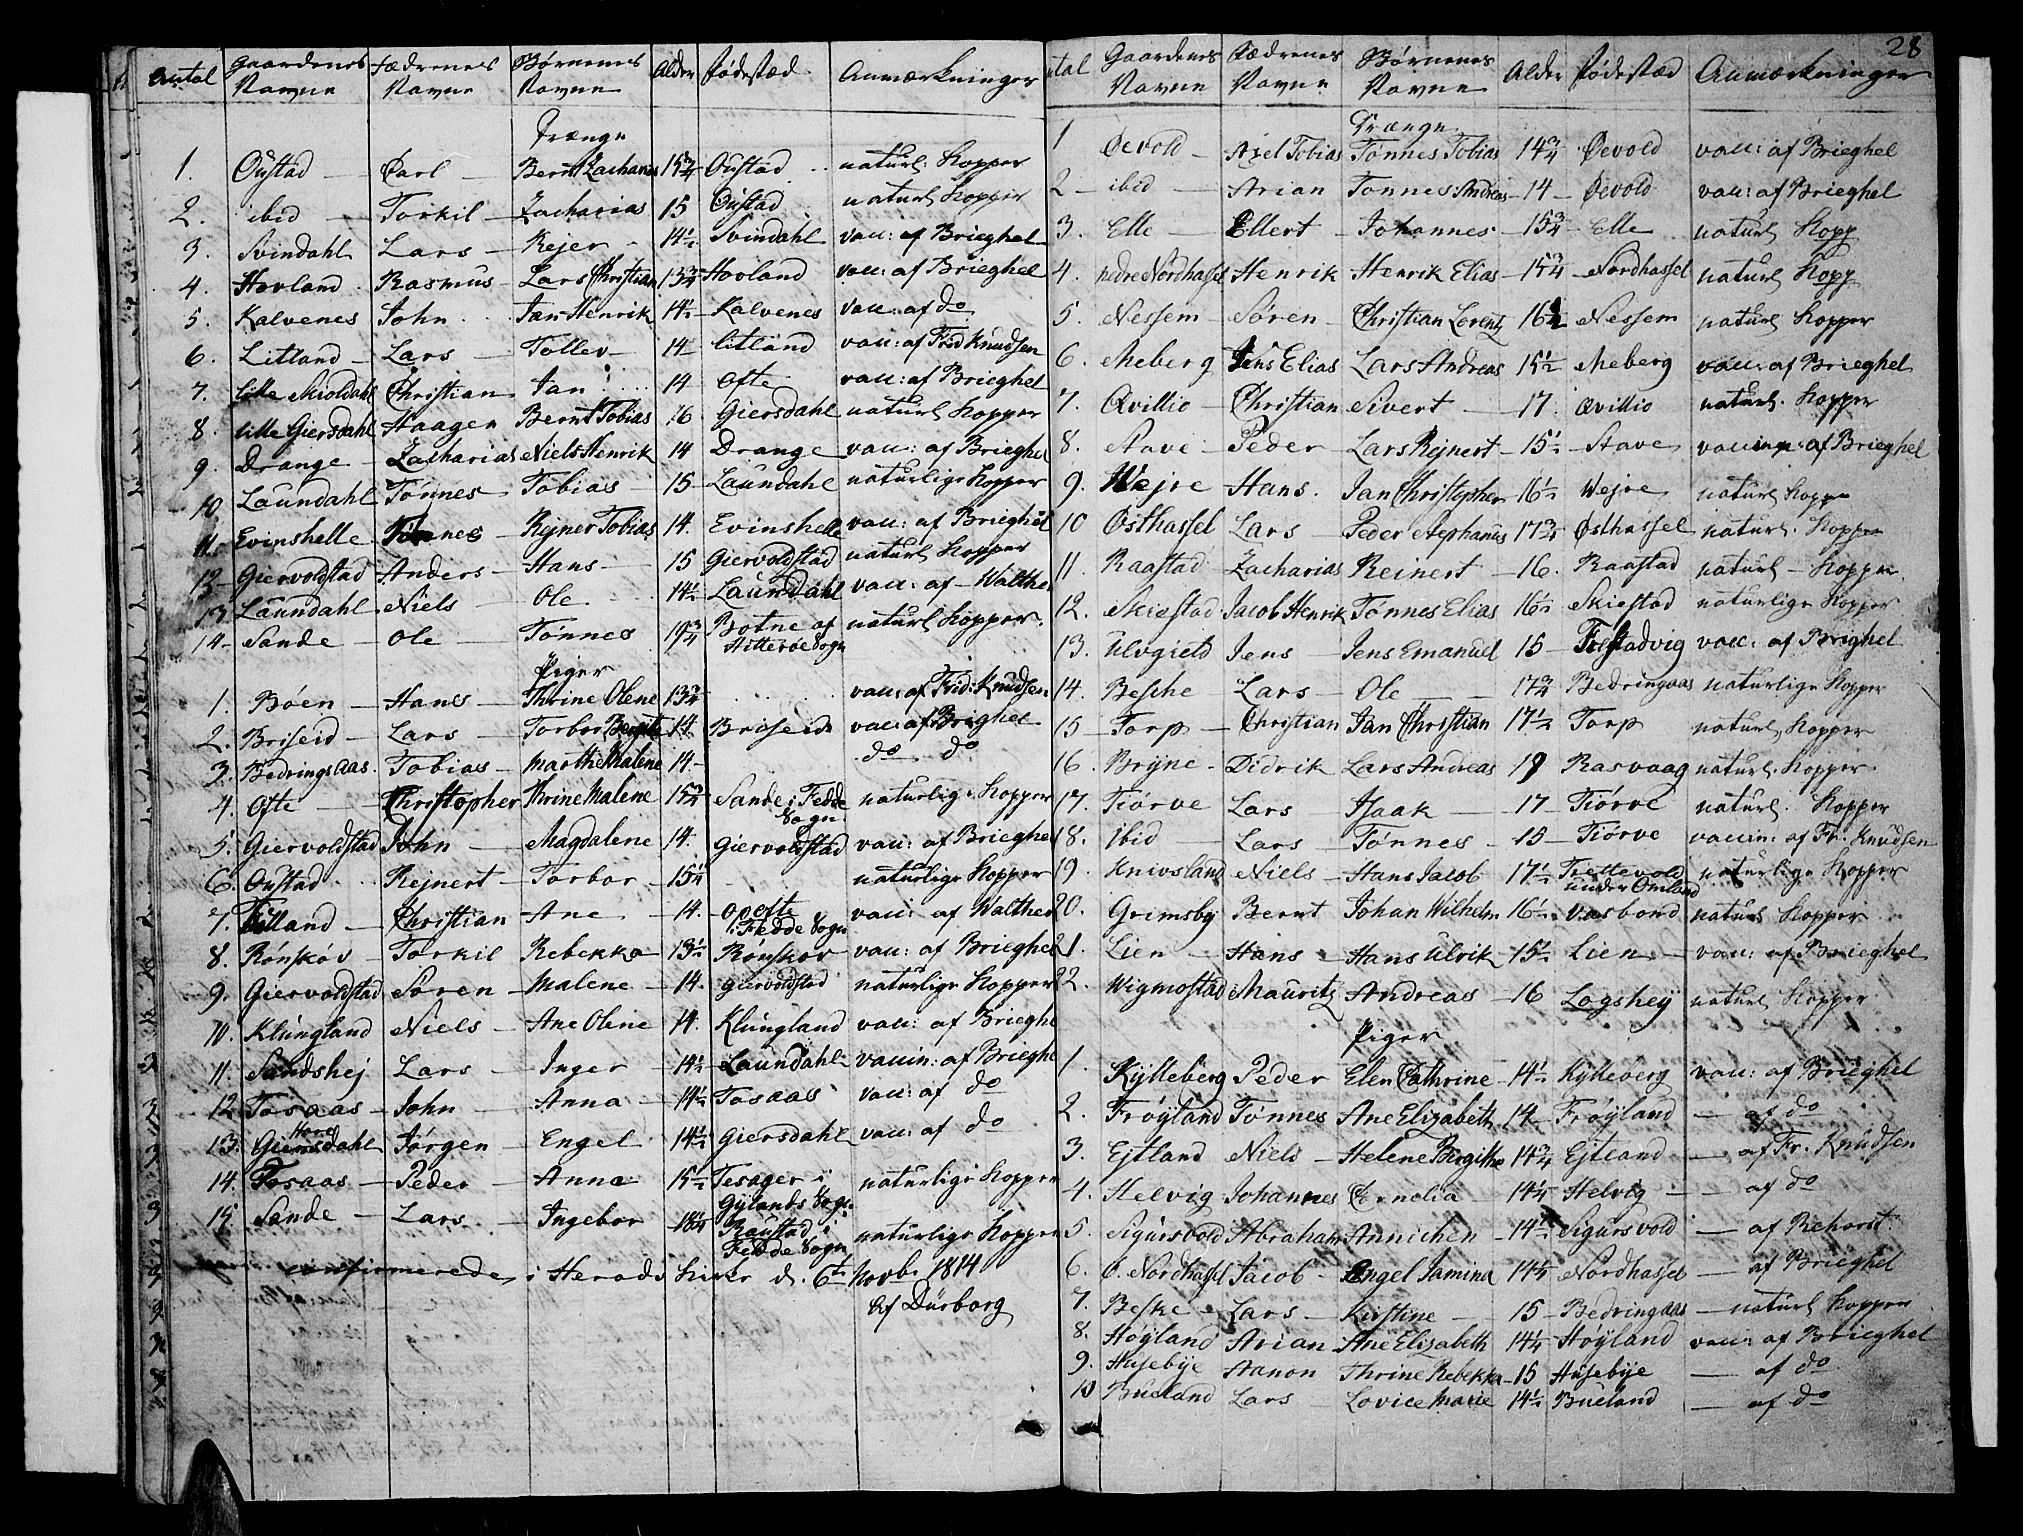 Antal Gaardenes Navne Fædrenes Navne Børnenes Navne Alder Fødestæd Anmærkninger
Drænge
1. Oustad — Carl — Bernt Zacharias 15 3/4 Oustad naturl: Kopper
2. ibid — Torkil — Zacharias 15 Oustad naturl Kopper
3. Svindahl Lars — Rejer 14 1/2 Svindahl vac: af Brieghel
4. Hovland Rasmus — Lars Christian 13 3/4 Hovland vac: af Brieghel
5. Kalvenes John Jan Henrik 14 1/2 Kalvenes vac: af do
6. Litland — Lars — Tollev — 14 — Litland vac: af Frid Knudsen
7. lille Skioldahl Christian Jan 14 Ofte vac: af Brieghel
8. lille Giersdahl Haagen Bernt Tobias 16 Giersdahl naturl Kopper
9. Drange — Zacharias Niels Henrik 14 Drange vac: af Brieghel
10 Laundahl Tønnes Tobias 15 Laundahl naturlige Kopper
11. Evinshelle Tønnes — Rejner Tobias 14. Evinshelle vac: af Brieghel
12 Giervoldstad Anders — Hans — 15 Giervoldstad naturl Kopper
13 Laundahl Niels Ole 14 1/2 Laundahl vac: af Walther
14 — Sande — Ole Tønnes 19 3/4 Botne af Hitterøe Sogn naturl Kopper.
Piger
1. Bøen — Hans — Thrine Olene 13 3/4 vac: af Frid: Knudsen
2. Briseid — Lars — Torbor Bergitte 14. Briseid vac: af Brighel
3. Bedringsaas. Tobias — Marthe Malene 14 — do do
4. Ofte — Christopher Thrine Malene 15 3/4 Sande i Fedde Sogn. naturlige Kopper
5. Giervoldstad John — Magdalene 14. Giervoldstad vac: af Brieghel
6. Oustad Rejnert — Torbor — 15 1/4 naturlige Kopper
7. Christian — Ane — 14. Opofte i Fedde Sogn vac: af Walther
8. Rønskov — Torkil Rebekka 13 1/2 Rønskov vac: af Brieghel
9. Giervoldstad Søren — Malene — 14. giervoldstad naturlige Kopper
10. Klungland Niels — Ane Olene 14. Klungland vac: af Brieghel
11. Sandshej Lars — Inger — 14 1/2 Laundahl vacin: af Brieghel
12 Tosaas — John — Anna — 14 1/2 Tosaas vac: af do
13. Store Giersdahl Jørgen — Engel 14 1/2 Giersdahl vac: af do
14. Tosaas — Peder — Anna 15 1/2 Tesager i Gylands Sogn naturlige Kopper
15. Sande — Lars — Ingebor — 18 1/4 Raustad i Fedde Sogn naturlige Kopper
confirmerede i Herads Kirke d. 6te Novbr 1814
Af Dürborg
28
Antal Gaardenes Navne Fædrenes Navne Børnenes Navne Alder Fødestæd Anmærkninger
Drænge
1 Øevold — Axel Tobias Tønnes Tobias 14 3/4 Øevold vac: af Brieghel
2 — ibid — Arian Tønnes Andreas — 14 — Øevold vac: af Brieghel
3. Elle — Ellert — Johannes — 15 3/4 — Elle naturl Kopp
4. nedre Nordhassel Henrik Henrik Elias — 15 3/4 — Nordhassel naturl Kopp
5. Nessem — Søren — Christian Lorentz 16 1/2 Nessem naturl Kopper
6. Meberg Jens Elias Lars Andreas 15 1/2 Meberg vac: af Brieghel
7. Qvillio — Christian Sivert — 17. Qvillio naturl. Kopper
8. Stave — Peder Lars Rejnert — 15 1/2 — Stave vacin: af Brieghel
9. Wejre Hans. Jan Christopher 16 1/2 Wejre naturl Kopper
10 Østhassel Lars — Peder Stephanus 17 3/4 Østhassel naturl. Kopper
11. Raastad — Zacharias Reinert — 16. Raastad naturl — Kopper.
12. Skiestad Jacob Henrik Tønnes Elias 16 1/2 Skiestad naturlige Kopper
13. Ulvgield Jens — Jens Emanuel 15 — Frestadvig vac: af Brighel
14. Besche Lars — Ole — 17 3/4 Bedringaas naturlige Kopper
15 — Torp — Christian Jan Christian 17 1/2 Torp naturl Kopper
16. Bryne — Didrik Lars Andreas 19 Rasvaag naturl Kopper
17. Tiørve Lars — Isaak — 17 — Tiørve naturl. Kopper
18. ibid — Lars — Tønnes — 15 — Tiørve vacin: af Fr. Knudsen
19. Knivsland Niels — Hans Jacob 17 1/2 Trettevold under Omland naturlige Kopper
20. Grimsby Bernt Johan Wilhelm 16 1/2 Vasbond naturl Kopper
21. Lien — Hans — Hans Ulrik 15 1/2 Lien — vac: af Brieghel
22. Wigmostad Mauritz Andreas — 16 Logshey naturl Kopper
Piger
1. Kylleberg Peder Elen Cathrine — 14 1/2 Kylleberg vac: af Brieghel
2. Frøyland Tønnes Ane Elizabeth 14 Frøyland — af do
3. Ejtland Niels — Helene Birgithe 14 3/4 Ejtland — af Fr. Knudsen
4. Helvig Johannes Cornelia 14 1/4 Helvig — af do
5. Sigursvold Abraham Annichen — 14 1/2 Sigursvold — af Rehorst.
6. Ø. Nordhassel Jacob — Engel Jamina 14 1/4 Nordhassel — af Brieghel
7. Beske — Lars — Kirstine — 15 — Bedringaas — naturl Kopper
8. Høyland Arian — Ane Elizabeth 14 1/4 Høyland vac: af Brieghel
9. Husebye Aanon Thrine Rebekka — 15 Husebye — af do
10 Bueland Lars — Lovice Marie 14 1/2 Bueland — af do